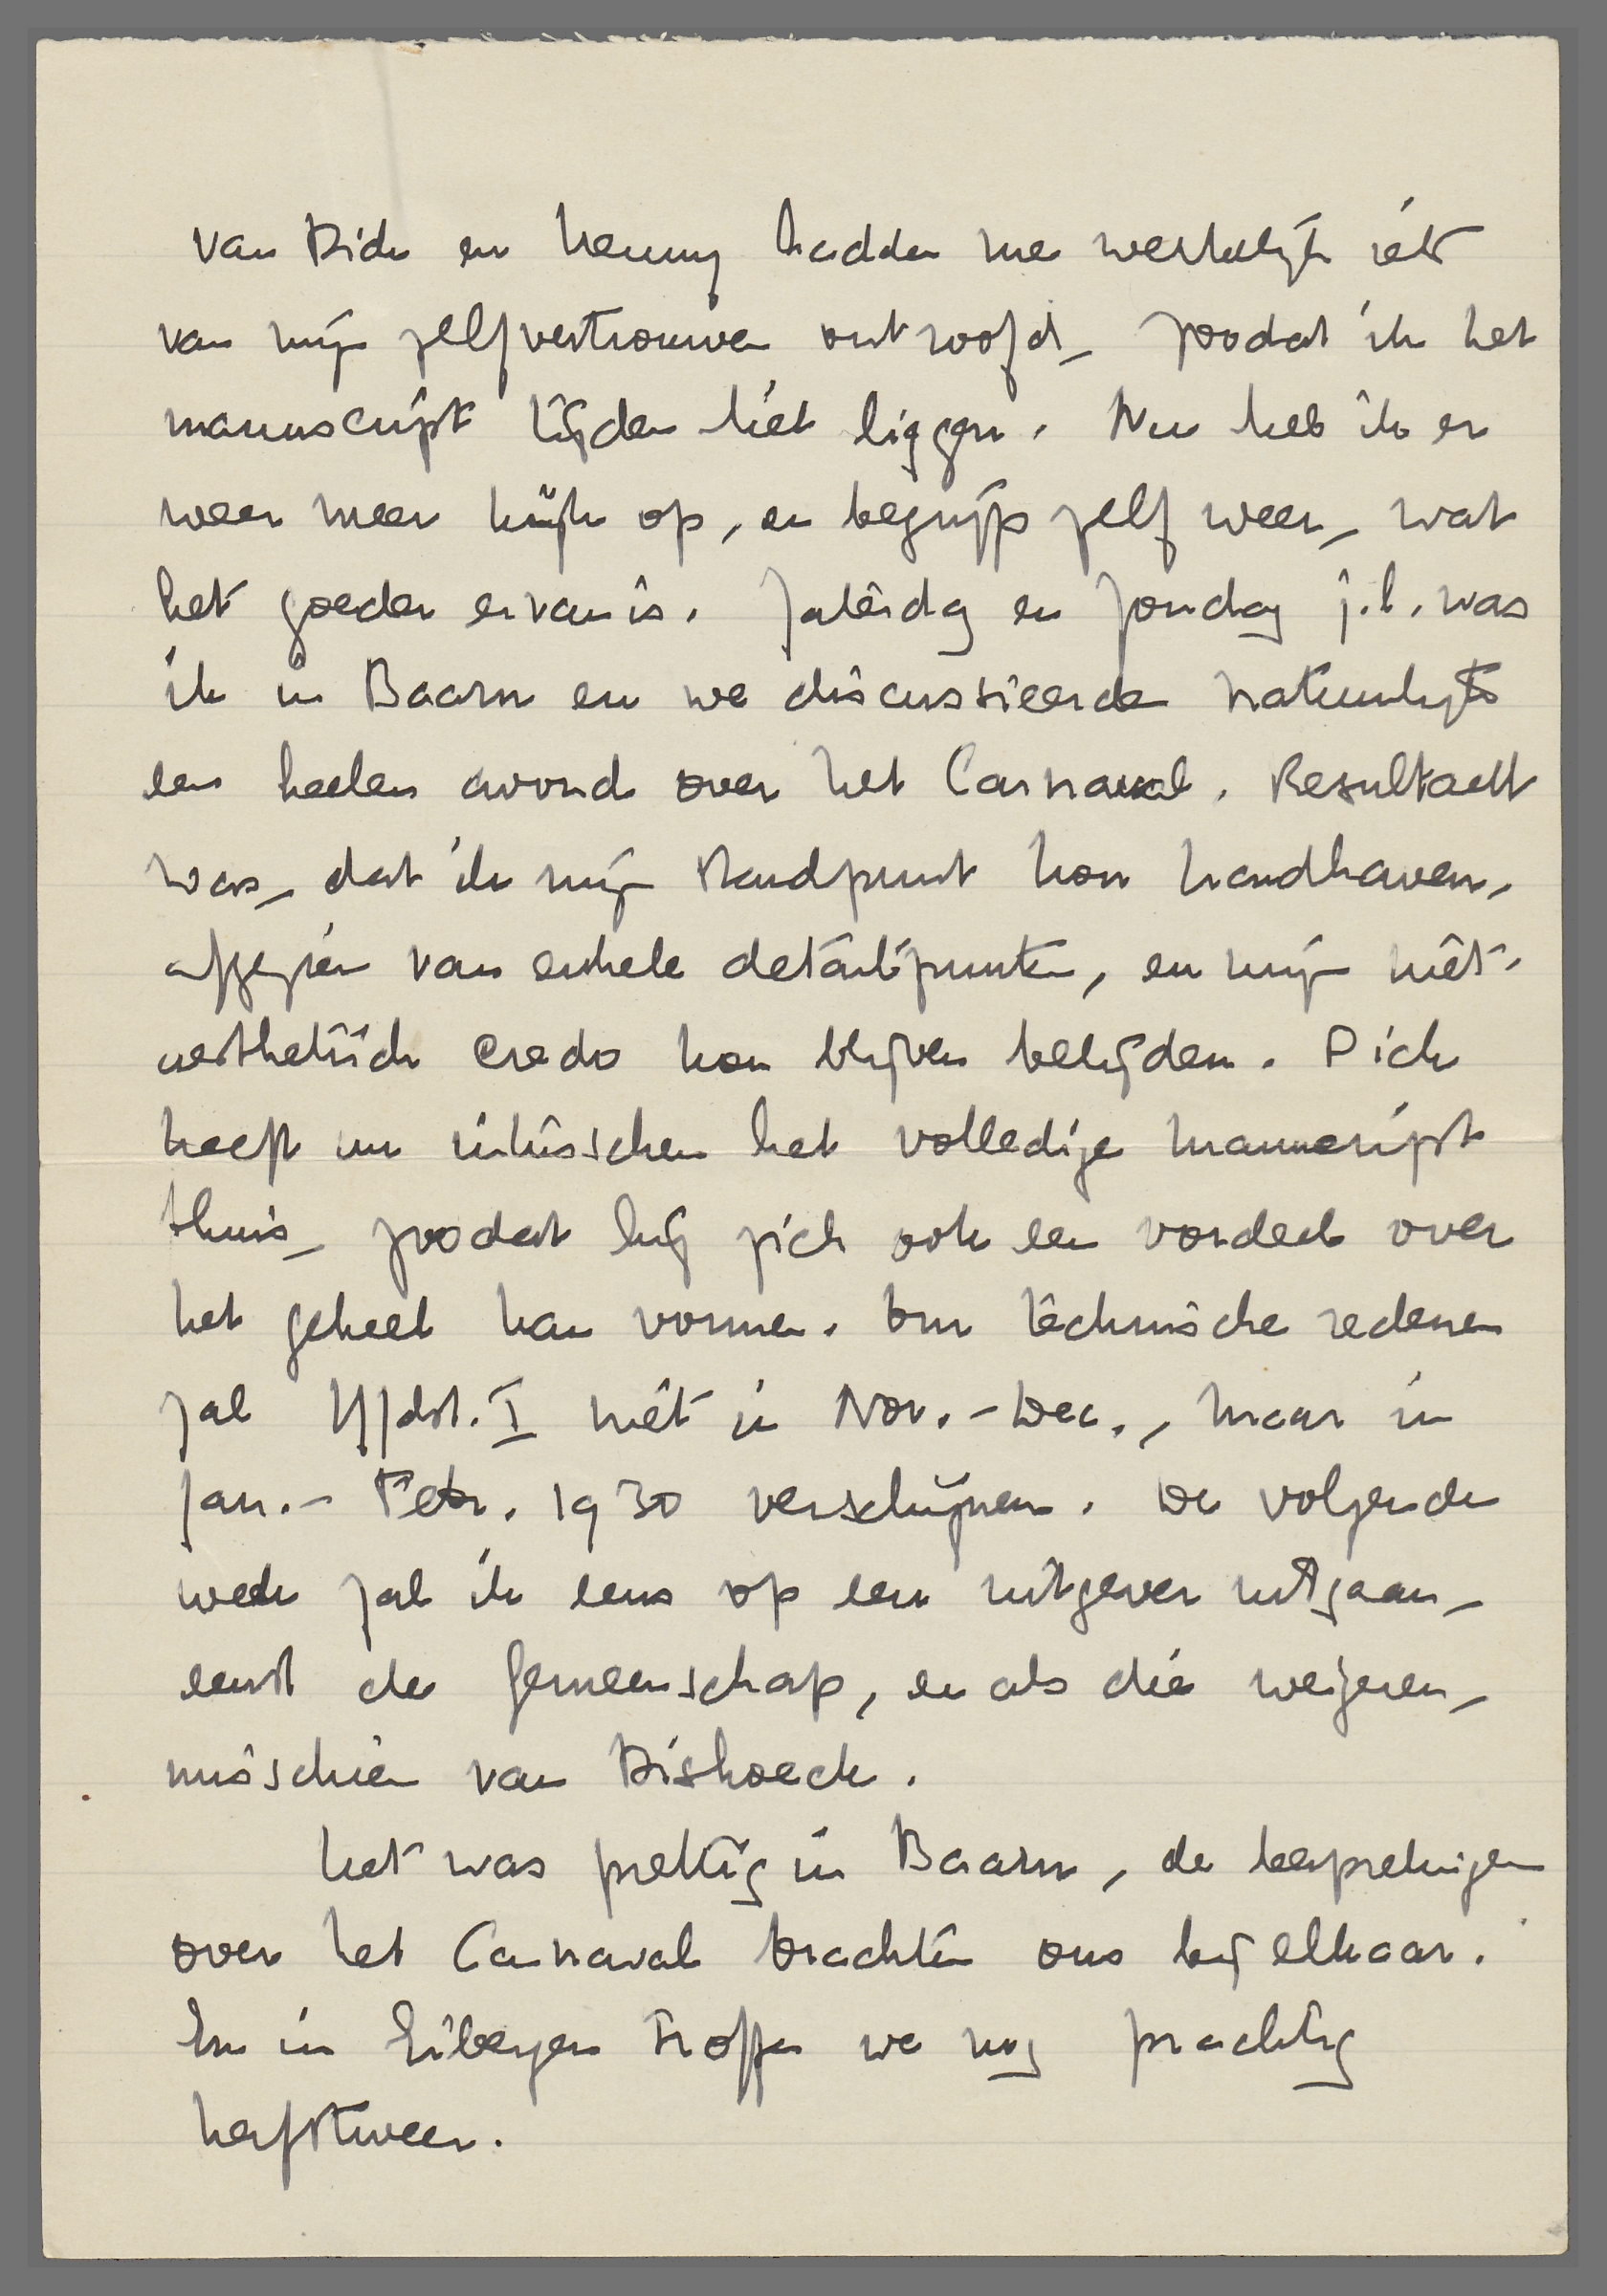 van Dick en Henny hadden me werkelijk iets
van mijn zelfvertrouwen ontroofd, zoodat ik het
manuscript tijden liet liggen. Nu heb ik er
weer meer kijk op, en begrijp zelf weer, wat
het goede ervan is. Zaterdag en Zondag j.l. was
ik in Baarn en we discussieerden natuurlijk
een heelen avond over het Carnaval. Resultaat
was, dat ik mijn standpunt kon handhaven,
afgezien van enkele detailpunten, en mijn niet-
aesthetisch credo kon blijven belijden. Dick
heeft nu intusschen het volledige manuscript
thuis, zoodat hij zich ook een oordeel over
het geheel kan vormen. Om technische redenen
zal Hfdst. I niet in Nov.-Dec., maar in
Jan.-Febr. 1930 verschijnen. De volgende
week zal ik eens op een uitgever uitgaan,
eerst de Gemeenschap, en als die weigeren,
misschien van Dishoeck.
Het was prettig in Baarn, de besprekingen
over het Carnaval brachten ons bij elkaar.
En in Eibergen troffen we nog prachtig
herfstweer.